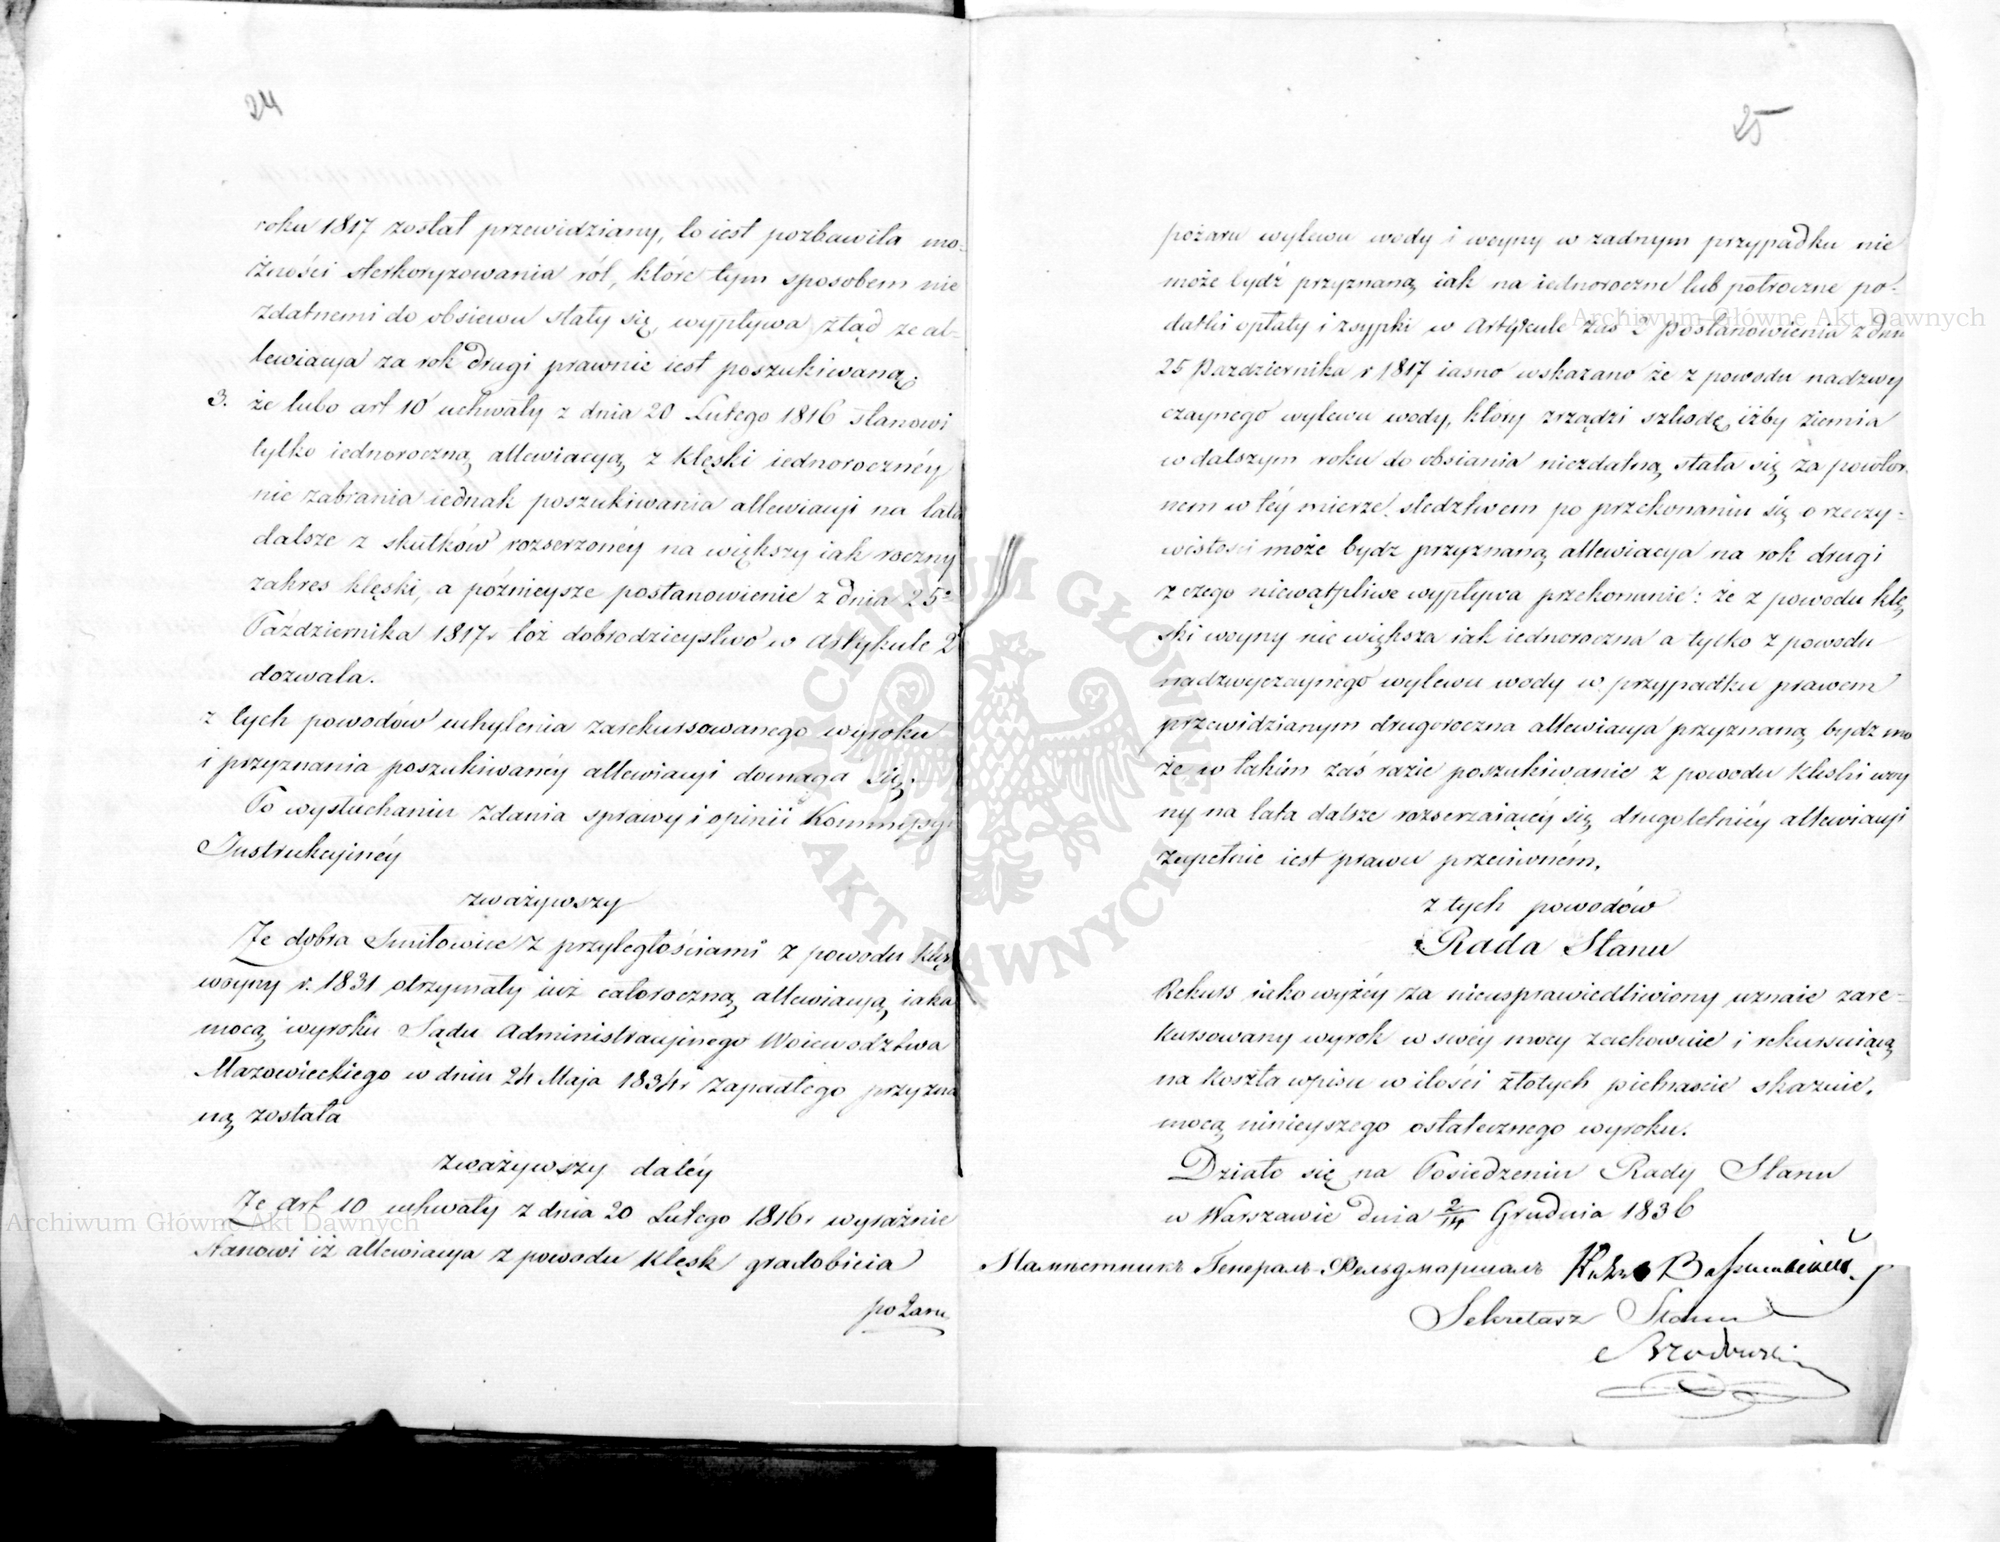 24
roku 1817 został przewidziany, to iest pozbawiła mo-
żności sterkoryzowania ról, które tym sposobem nie
zdatnemi do obsiewu stały się, wypływa ztąd ze al-
lewiacya za rok drugi prawnie iest poszukiwaną.
3. że lubo art 10 uchwały z dnia 20 Lutego 1816 stanowi
tylko iednoroczną allewiacyą z klęski iednorocznéy
nie zabrania iednak poszukiwania allewiacyi na lata
dalsze z skutków rozserzonéy na większy iak roczny
zakres klęski, a późnieysze postanowienie z dnia 25º
Października 1817 r toż dobrodzieystwo w Artykule 2
dozwala.
z tych powodów uchylenia zarekursowanego wyroku
i przyznania poszukiwanéy allewiacyi domaga się.
Po wysłuchaniu zdania sprawy i opinii Kommissyi
Instrukcyinéy
zważywszy
Ze dobra Smiłowice z przyległościami z powodu klęs
woyny r. 1831 otrzymały iuż całoroczną allewiacyą, iaka
mocą wyroku Sądu Administracyinego Woiewodztwa
Mazowieckiego w dniu 24 Maja 1834 r zapadłego przyzna
ną została
zważywszy daléy
Ze art 10 uchwały z dnia 20 Lutego 1816 r wyraźnie
stanowi iż allewiacya z powodu klęsk gradobicia
pożaru
25
pożaru wylewu wody i woyny w żadnym przypadku nie
może bydź przyznaną iak na iednoroczne lub półroczne po-
datki opłaty i zsypki w Artykule zaś 2 Postanowienia z dnia
25 Pazdziernika r 1817 iasno wskazano że z powodu nadzwy
czaynego wylewu wody, który zrządzi szkodę, iżby ziemia
w dalszym roku do obsiania niezdatną stała się za powtór
nem w téy mierze śledztwem po przekonaniu się o rzeczy-
wistości może bydz przyznaną allewiacya na rok drugi
z czego niewątpliwe wypływa przekonanie: że z powodu klę
ski woyny nie większa iak iednoroczna a tylko z powodu
nadzwyczaynego wylewu wody w przypadku prawem
przewidzianym drugoroczna allewiacya przyznaną bydz mo
że w takim zaś razie poszukiwanie z powodu klęski woy
ny na lata dalsze rozserzaiącéy się drugoletniéy allewiacyi
zupełnie iest prawu przeciwném.
z tych powodów
Rada Stanu
Rekurs iako wyżéy za nieusprawiedliwiony uznaie zare-
kursowany wyrok w swéy mocy zachowuie i rekursuiącą
na koszta wpisu w ilości złotych piętnaście skazuie,
mocą ninieyszego ostatecznego wyroku.
Działo się na Posiedzeniu Rady Stanu
w Warszawie dnia 2/14 Grudnia 1836
Намѣстникъ Генералъ-Фельдмаршалъ
Sekretarz Stanu
Brodowski
Archiwum Główne Akt Dawnych
Archiwum Główne Akt Dawnych
ARCHIWUM GŁÓWNE
AKT DAWNYCH